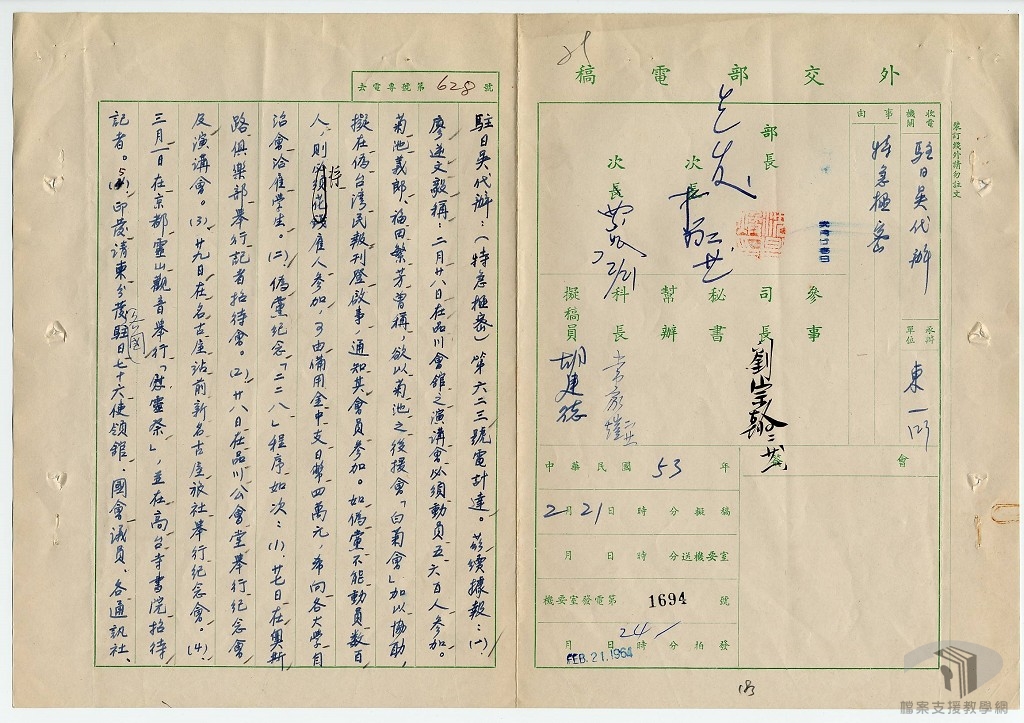 外交部電稿
收電機關
駐日吳代辦
事由
特急極密
承辦單位
東一
部長
次長
次長
參事
司長
劉宗翰
秘書
幫辦
科長
擬稿員
胡建德
會
中華民國53年
2月21日 時 分擬稿
月 日 時 分送機要室
機要室發電第1694號
月 日 時 分拍發
24
FEB. 21. 1964
裝訂綫外請勿註文
去電專號第628號
駐日吳代辦:(特急極密)第六二三號電計達。茲續據報:(一)、
廖逆文毅稱:二月廿八日在品川會館之演講會必須動員五六百人參加。
菊池義郎、福田繁芳曾稱,欲以菊池之後援會「白菊會」加以協助,
擬在偽台湾民報刊登啟事,通知其會員參加。如偽黨不能動員数百
人,則必須花錢雇人參加,可由備用金中支日幣四萬元,希向各大學自
治會洽雇學生。(二)、偽黨紀念「二二八」程序如次:(1)、廿七日在奧斯
路俱樂部舉行記者招待會。(2)、廿八日在品川公會堂舉行紀念會
及演講會。(3)、廿九日在名古屋站前新名古屋旅社舉行紀念會。(4)、
三月一日在京都靈山觀音舉行「慰靈祭」,並在高台寺書院招待
記者。(5)、印發請柬分發駐日七十六使領館、國會議員、各通訊社、
檔案支援教學網